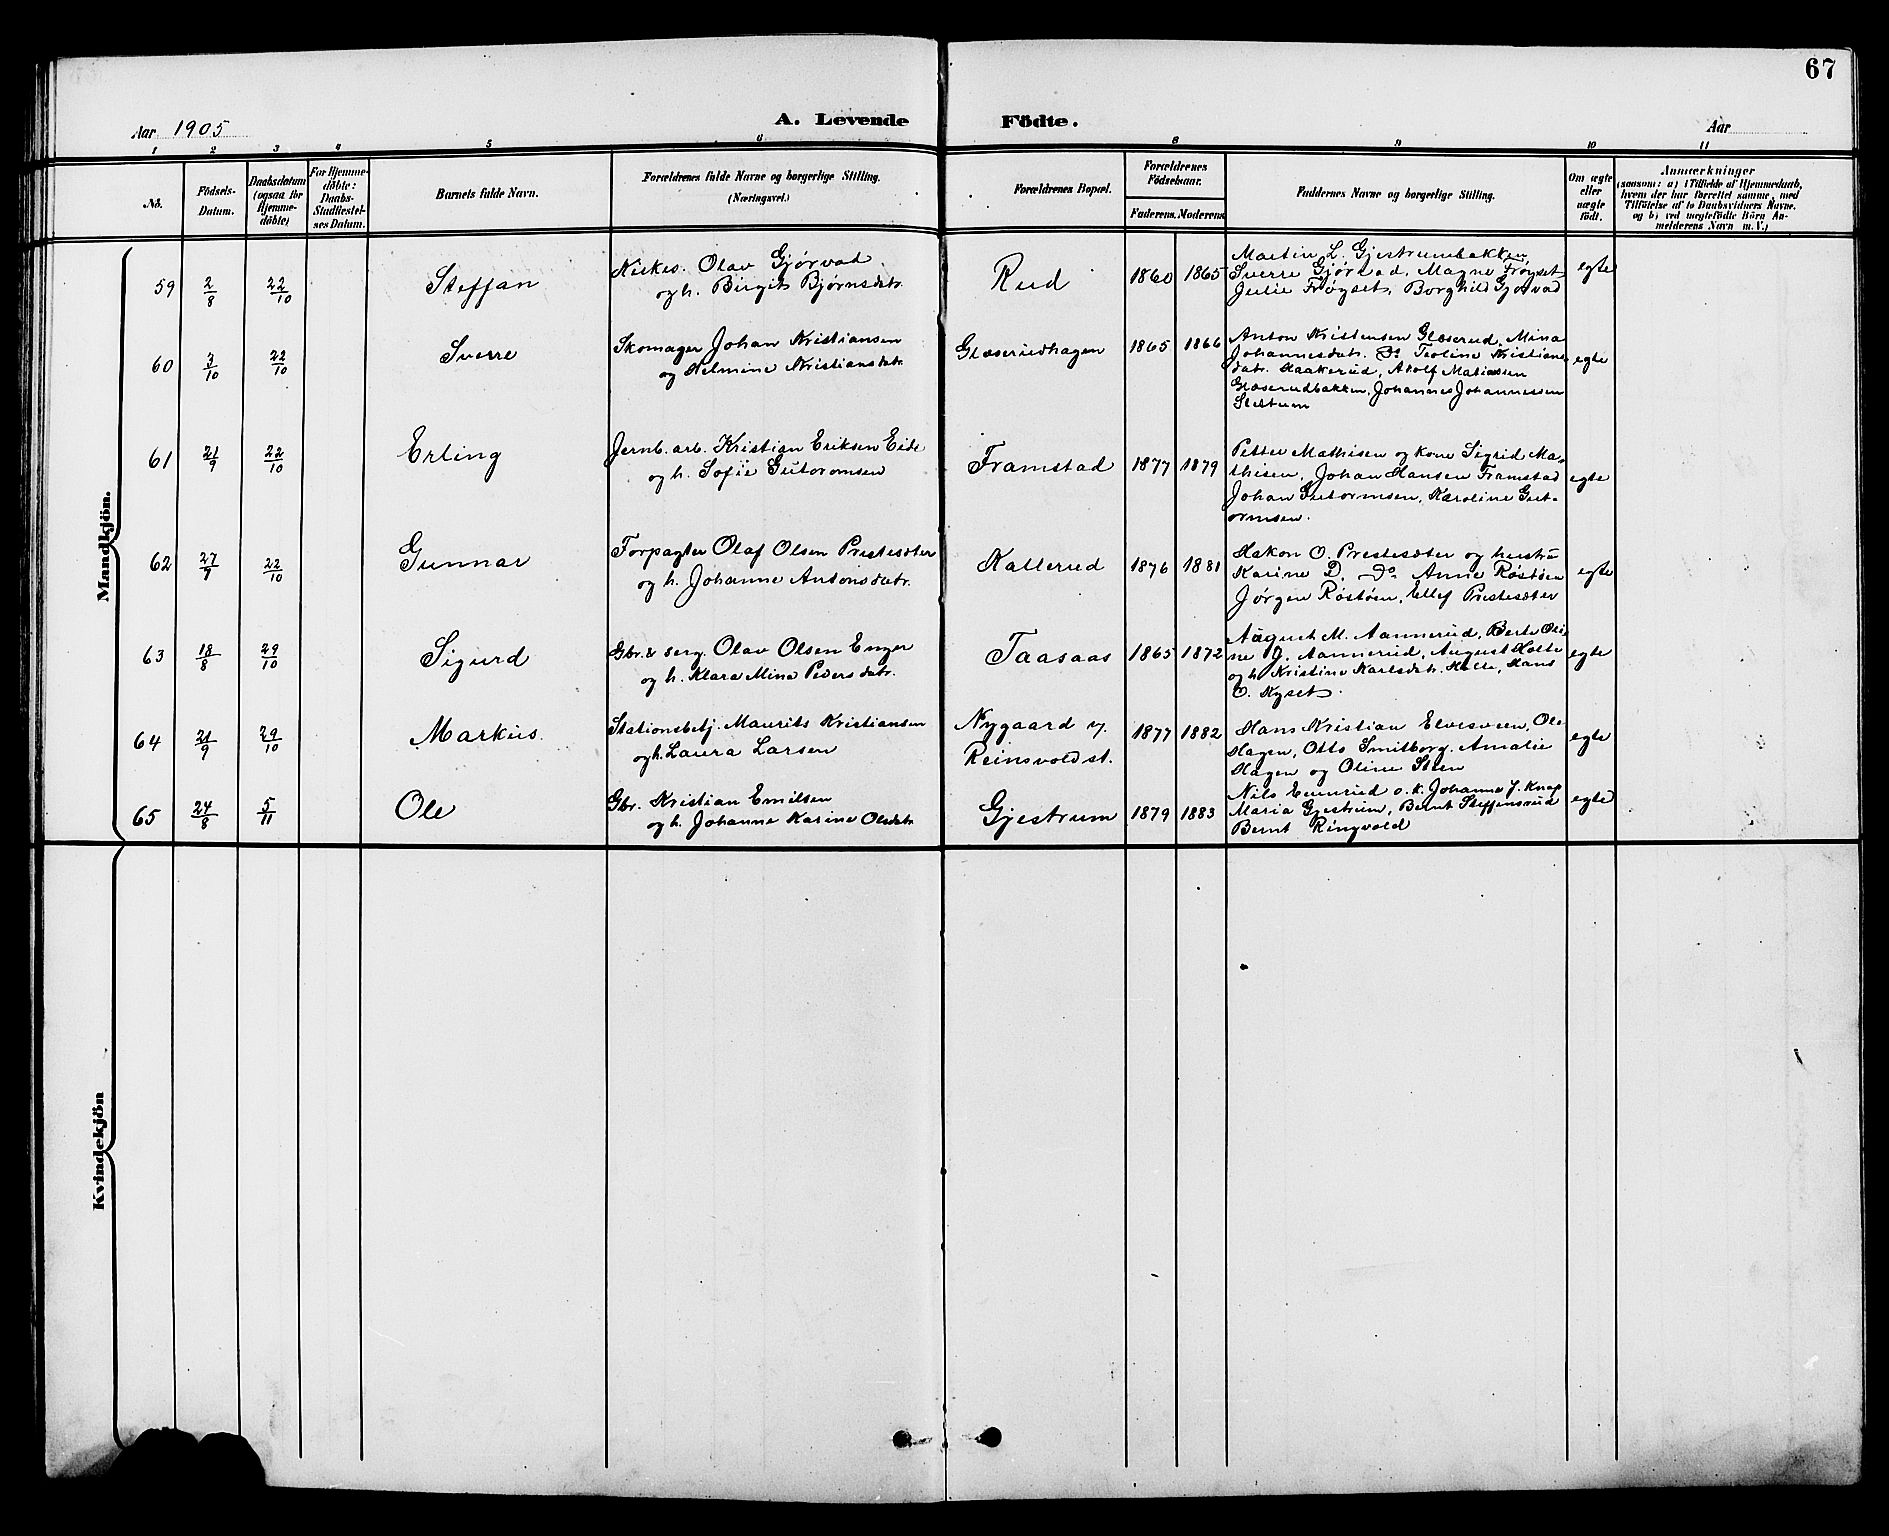 67
Aar 1905
A. Levende Födte.
Aar
1 2 3 4 5 6 8 9 10 11
No.
Födsels-
Datum.
Daabsdatum
(ogsaa for
Hjemme-
döbte)
For Hjemme-
döbte:
Daabs-
Stadfæstel-
ses Datum.
Barnets fulde Navn.
Forældrenes fulde Navne og borgerlige Stilling.
(Næringsvei.)
Forældrenes Bopæl.
Forældrenes
Födselsaar.
Faderens. Moderens
Faddernes Navne og borgerlige Stilling.
Om ægte
eller
uægte
födt.
Anmærkninger
(saasom: a) i Tilfælde af Hjemmedaab,
hvem der har forrettet samme, med
Tilföielse af to Daabsvidners Navne.
og b) ved uægtefödte Börn An-
melderens Navn m. V.)
Mandkjön.
59 2/8 22/10 Steffan
Kirkes. Olav Gjørvad
og h. Birgit Bjørnsdatr.
Rud 1860 1865
Martin L. Gjestrumbakken,
Sverre Gjørvad, Magne Frøyset
Julie Frøyset, Borghild Gjørvad
egte
60 3/10 22/10 Sverre
Skomager Johan Kristiansen
og Helmine Kristiansdatr.
Glæserudhagen 1865 1866
Anton Kristensen Glæserud, Mina
Johannesdatr. Do Teoline Kristians
datr. Haakerud, Adolf Matiasen
Glæserudbakken, Johannes Johannessen
Slettum
egte
61 21/9 22/10 Erling
Jernb. arb. Kristian Eriksen Eide
og h. Sofie Gutormsen
Framstad 1877 1879
Petter Mathisen og kone Sigrid Ma-
thisen, Johan Hansen Framstad
Johan Gutormsen, Karoline Gut-
ormsen.
egte
62 27/7 22/10 Gunnar
Forpagter Olaf Olsen Prestesæter
og h. Johanne Antonsdatr.
Kallerud 1876 1881
Hakon O. Prestesæter og hustru
Karine D. Do. Anne Røstøen
Jørgen Røstøen, Ellef Prestesæter
egte
63 18/8 29/10 Sigurd
Gbr. & serg. Olav Olsen Enger
og h. Klara Mina Pedersdatr.
Taasaas 1865 1872
August M. Aannerud, Berte Oli-
ne J. Aannerud, August Holte
og h Kristine Karlsdatr. Holte, Hans
O. Kyset.
egte
64 21/9 29/10 Markus.
Stationsbetj. Maurits Kristiansen
og h. Laura Larsen
Nygaard v.
Reinsvold st.
1877 1882
Hans Kristian Elvesveen, Ole
Hagen, Otto Smitborg, Amalie
Hagen og Oline Steen
egte
65 24/8 5/11 Ole
Gbr. Kristian Emilsen
og h. Johanne Karine Olsdatr.
Gjestrum 1879 1883
Nils o. k. Johanne J. Knap
Maria Gjestrum, Bernt Steffensrud
Bernt Ringvold
egte
Kvindekjön